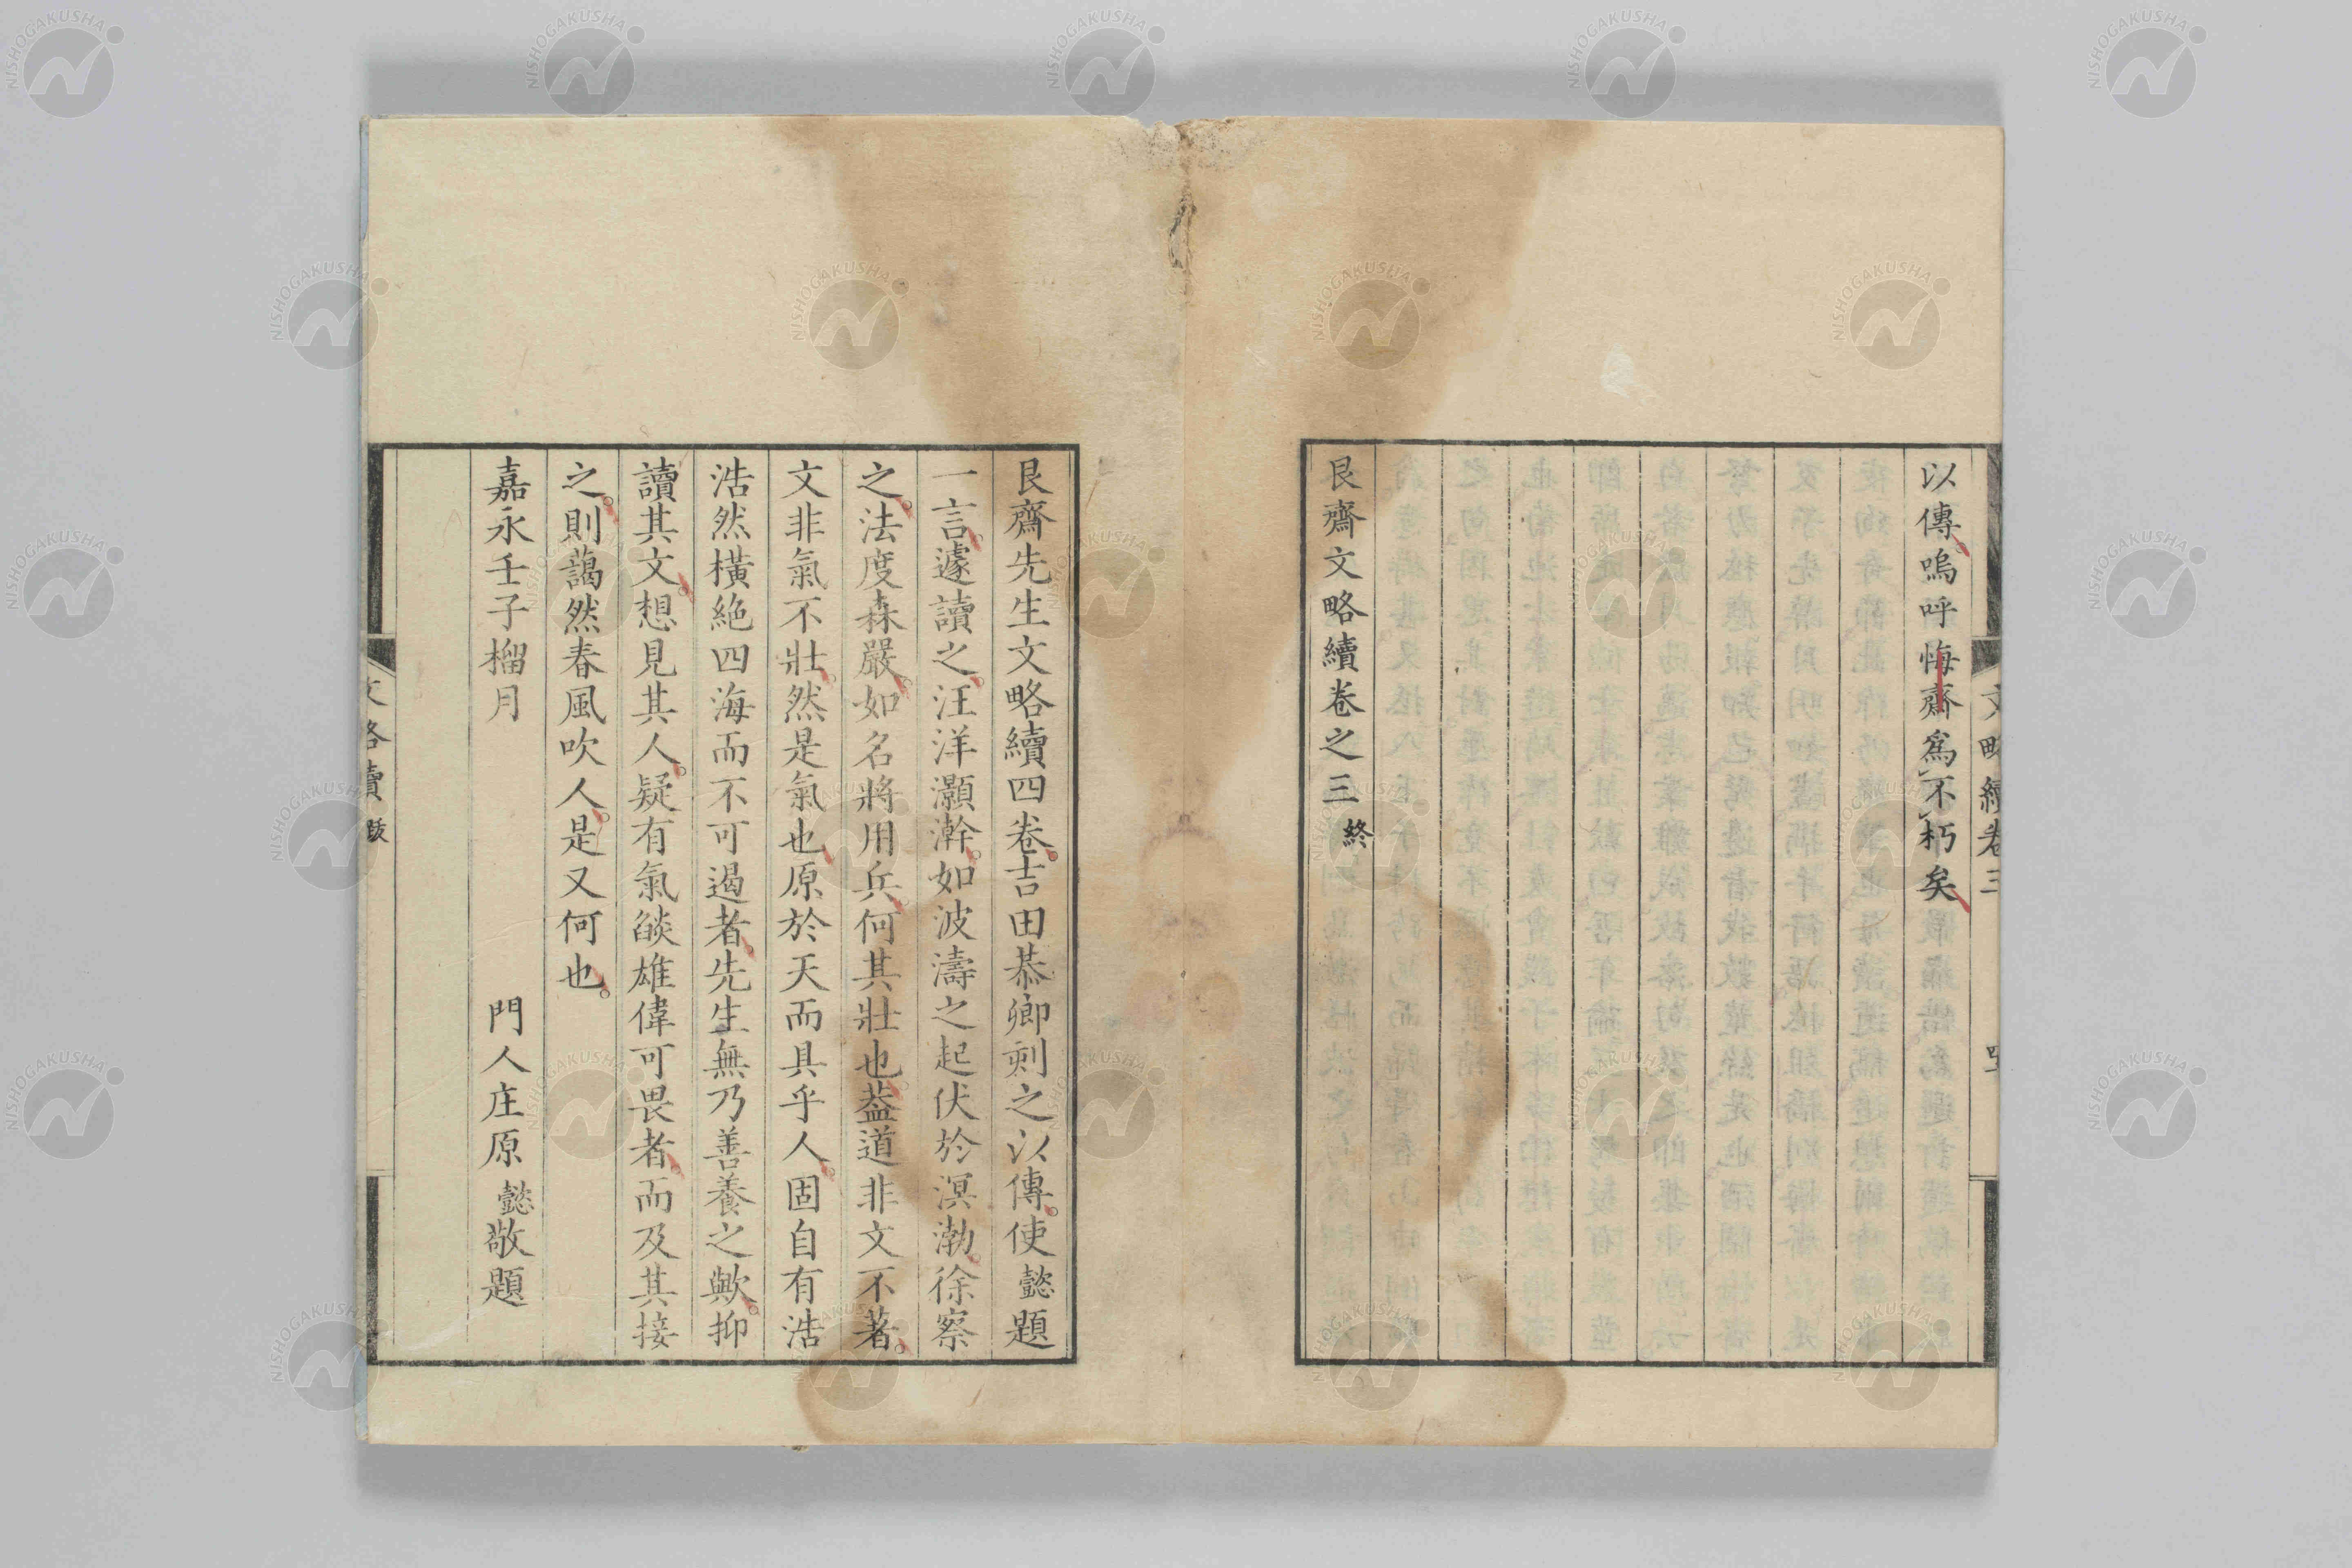 以傳嗚呼悔齋爲不朽矣
艮齋文略續卷之三 終
艮齋先生文略續四卷吉田恭卿刻之以傳使懿題
一言遽讀之汪洋灝瀚如波濤之起伏於溟渤徐察
之法度森嚴如名將用兵何其壯也葢道非文不著
文非氣不壯然是氣也原於天而具乎人固自有浩
浩然橫絶四海而不可遏者先生無乃善養之歟抑
讀其文想見其人疑有氣燄雄偉可畏者而及其接
之則藹然春風吹人是又何也
嘉永壬子榴月
門人庄原懿敬題